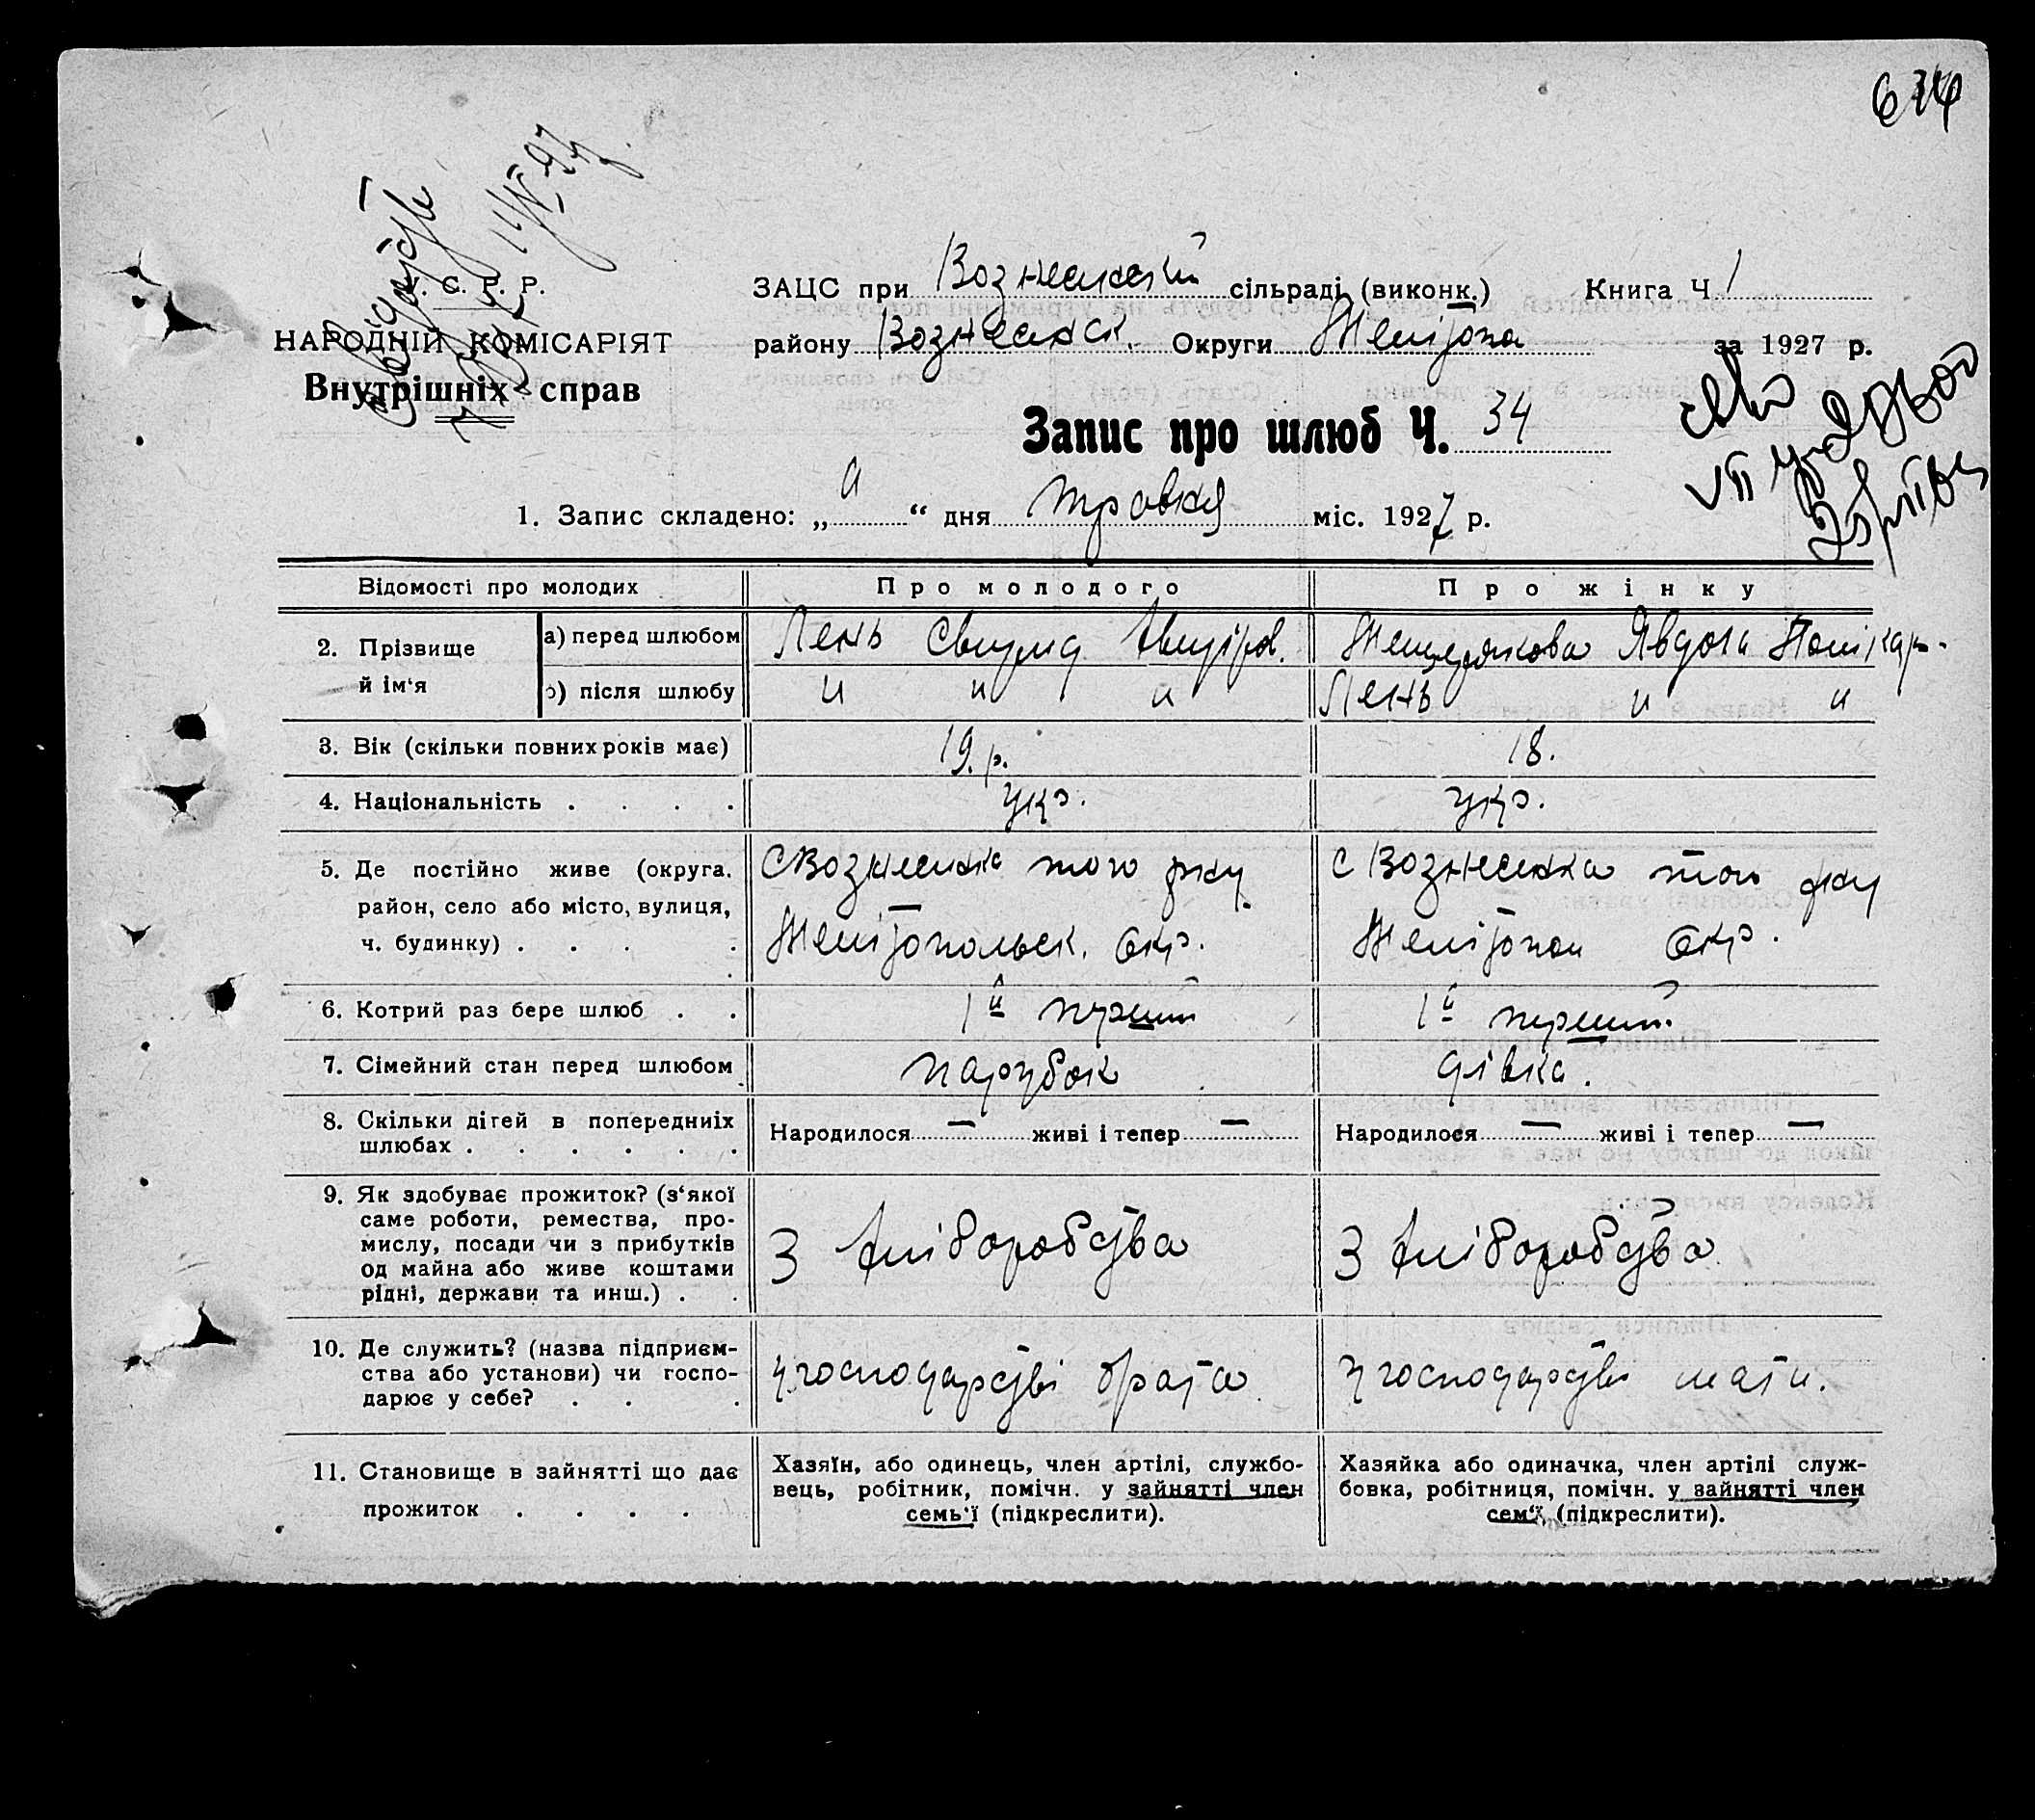 У. С. Р. Р.
НАРОДНІЙ КОМІСАРІЯТ
Внутрішніх справ
ЗАЦС при Вознесенській сільраді (виконк.) Книга Ч 1
району Вознесенск. Округи Мелітоп за 1927 р.
Запис про шлюб Ч. 34
1. Запис складено: „ “ дня травня міс. 1927 р.
Відомості про молодих Про молодого Про жінку
2. Прізвище й ім‘я
а) перед шлюбом Лень Свирид Мещерякова Явдоха Полікар.
б) після шлюбу и и и Лень и и
3. Вік (скільки повних років має) 19. р. 18.
4. Національність . . . . укр. укр.
5. Де постійно живе (округа, с Вознесенка того рну с Вознесенка того рну
район, село або місто, вулиця, Мелітопольск. Окр. Мелітопол Окр.
ч. будинку) . . . .
6. Котрий раз бере шлюб . . 1й перший 1й перший
7. Сімейний стан перед шлюбом парубок дівка.
8. Скільки дітей в попередніх Народилося — живі і тепер — Народилося — живі і тепер —
шлюбах . . . . . .
9. Як здобуває прожиток? (з‘якої
саме роботи, ремества, про-
мислу, посади чи з прибутків З хліборобства З хліборобства
од майна або живе коштами
рідні, держави та инш.) . .
10. Де служить? (назва підприєм-
ства або установи) чи госпо- у господарстві брата у господарстві мати.
дарює у себе? . . .
11. Становище в зайнятті що дає Хазяїн, або одинець, член артілі, службо- Хазяйка або одиначка, член артілі служ-
прожиток . . . . вець, робітник, помічн. у зайнятті член бовка, робітниця, помічн. у зайнятті член
семь‘ї (підкреслити). сем‘ї, (підкреслити).